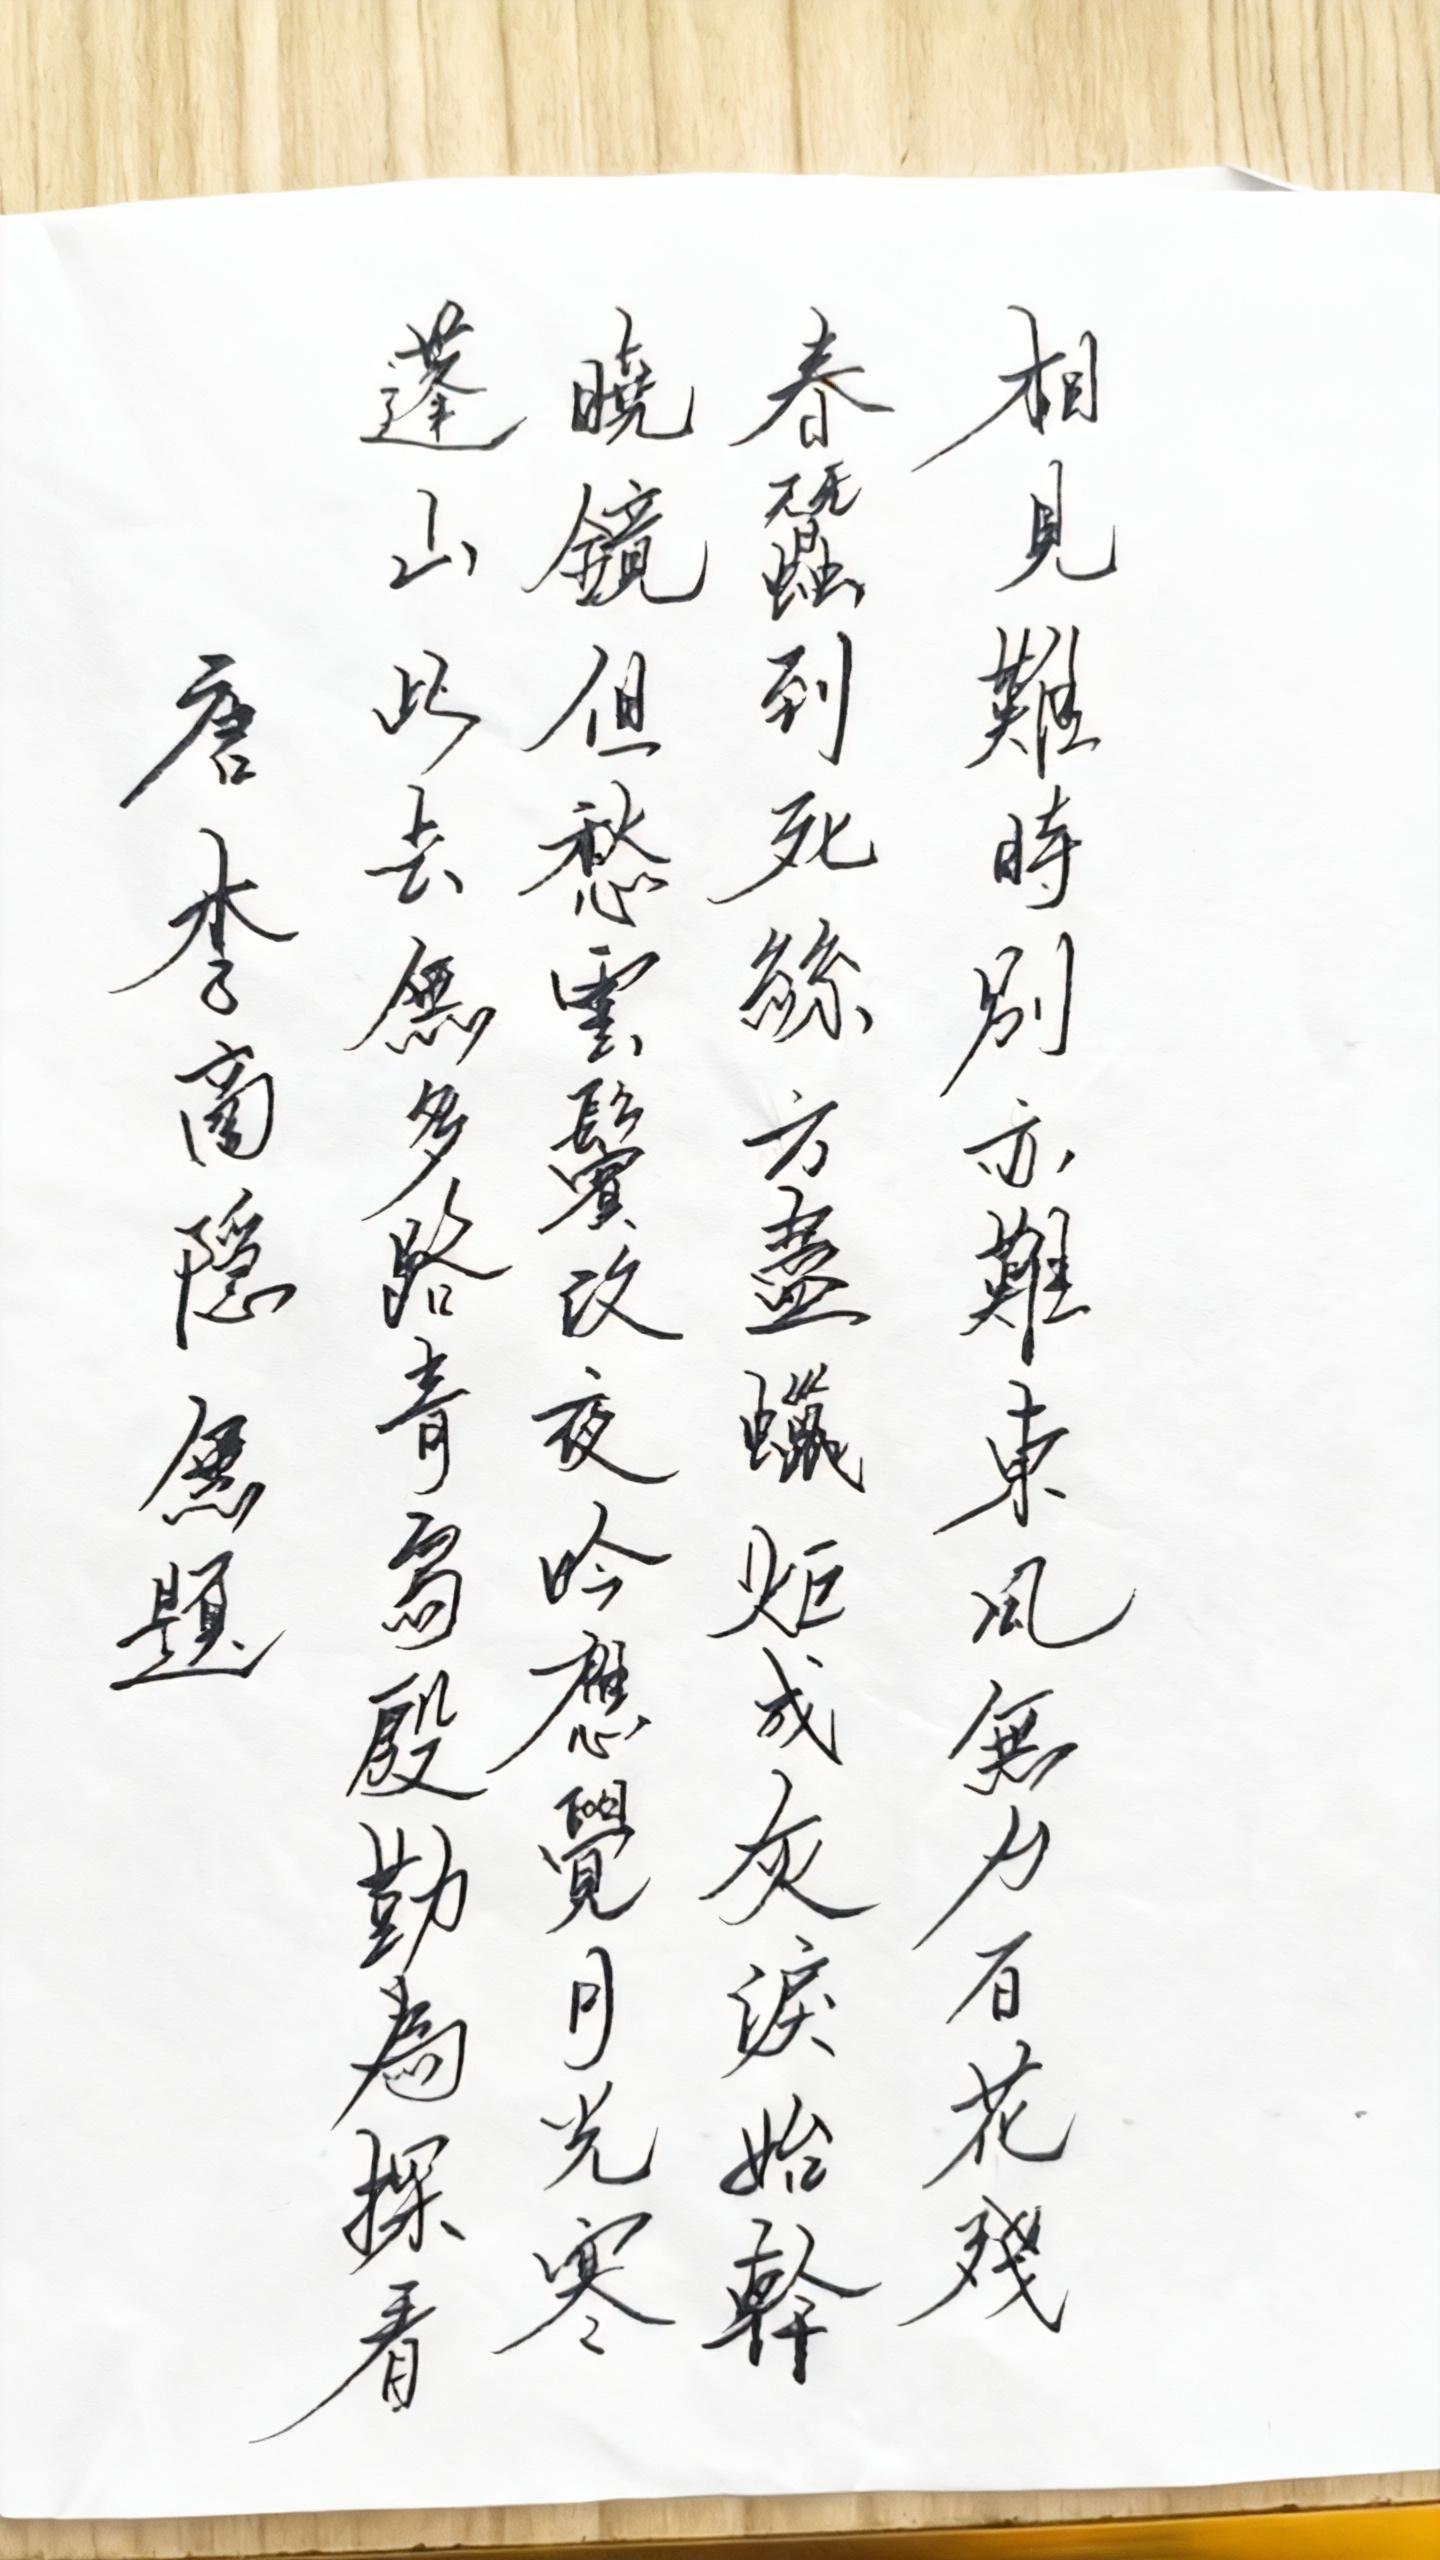 相見難時別亦難東風無力百花殘
春蠶到死絲方盡蠟炬成灰淚始幹
曉鏡但愁雲鬢改夜吟應覺月光寒
蓬山此去無多路青鳥殷勤為探看
唐李商隱無題